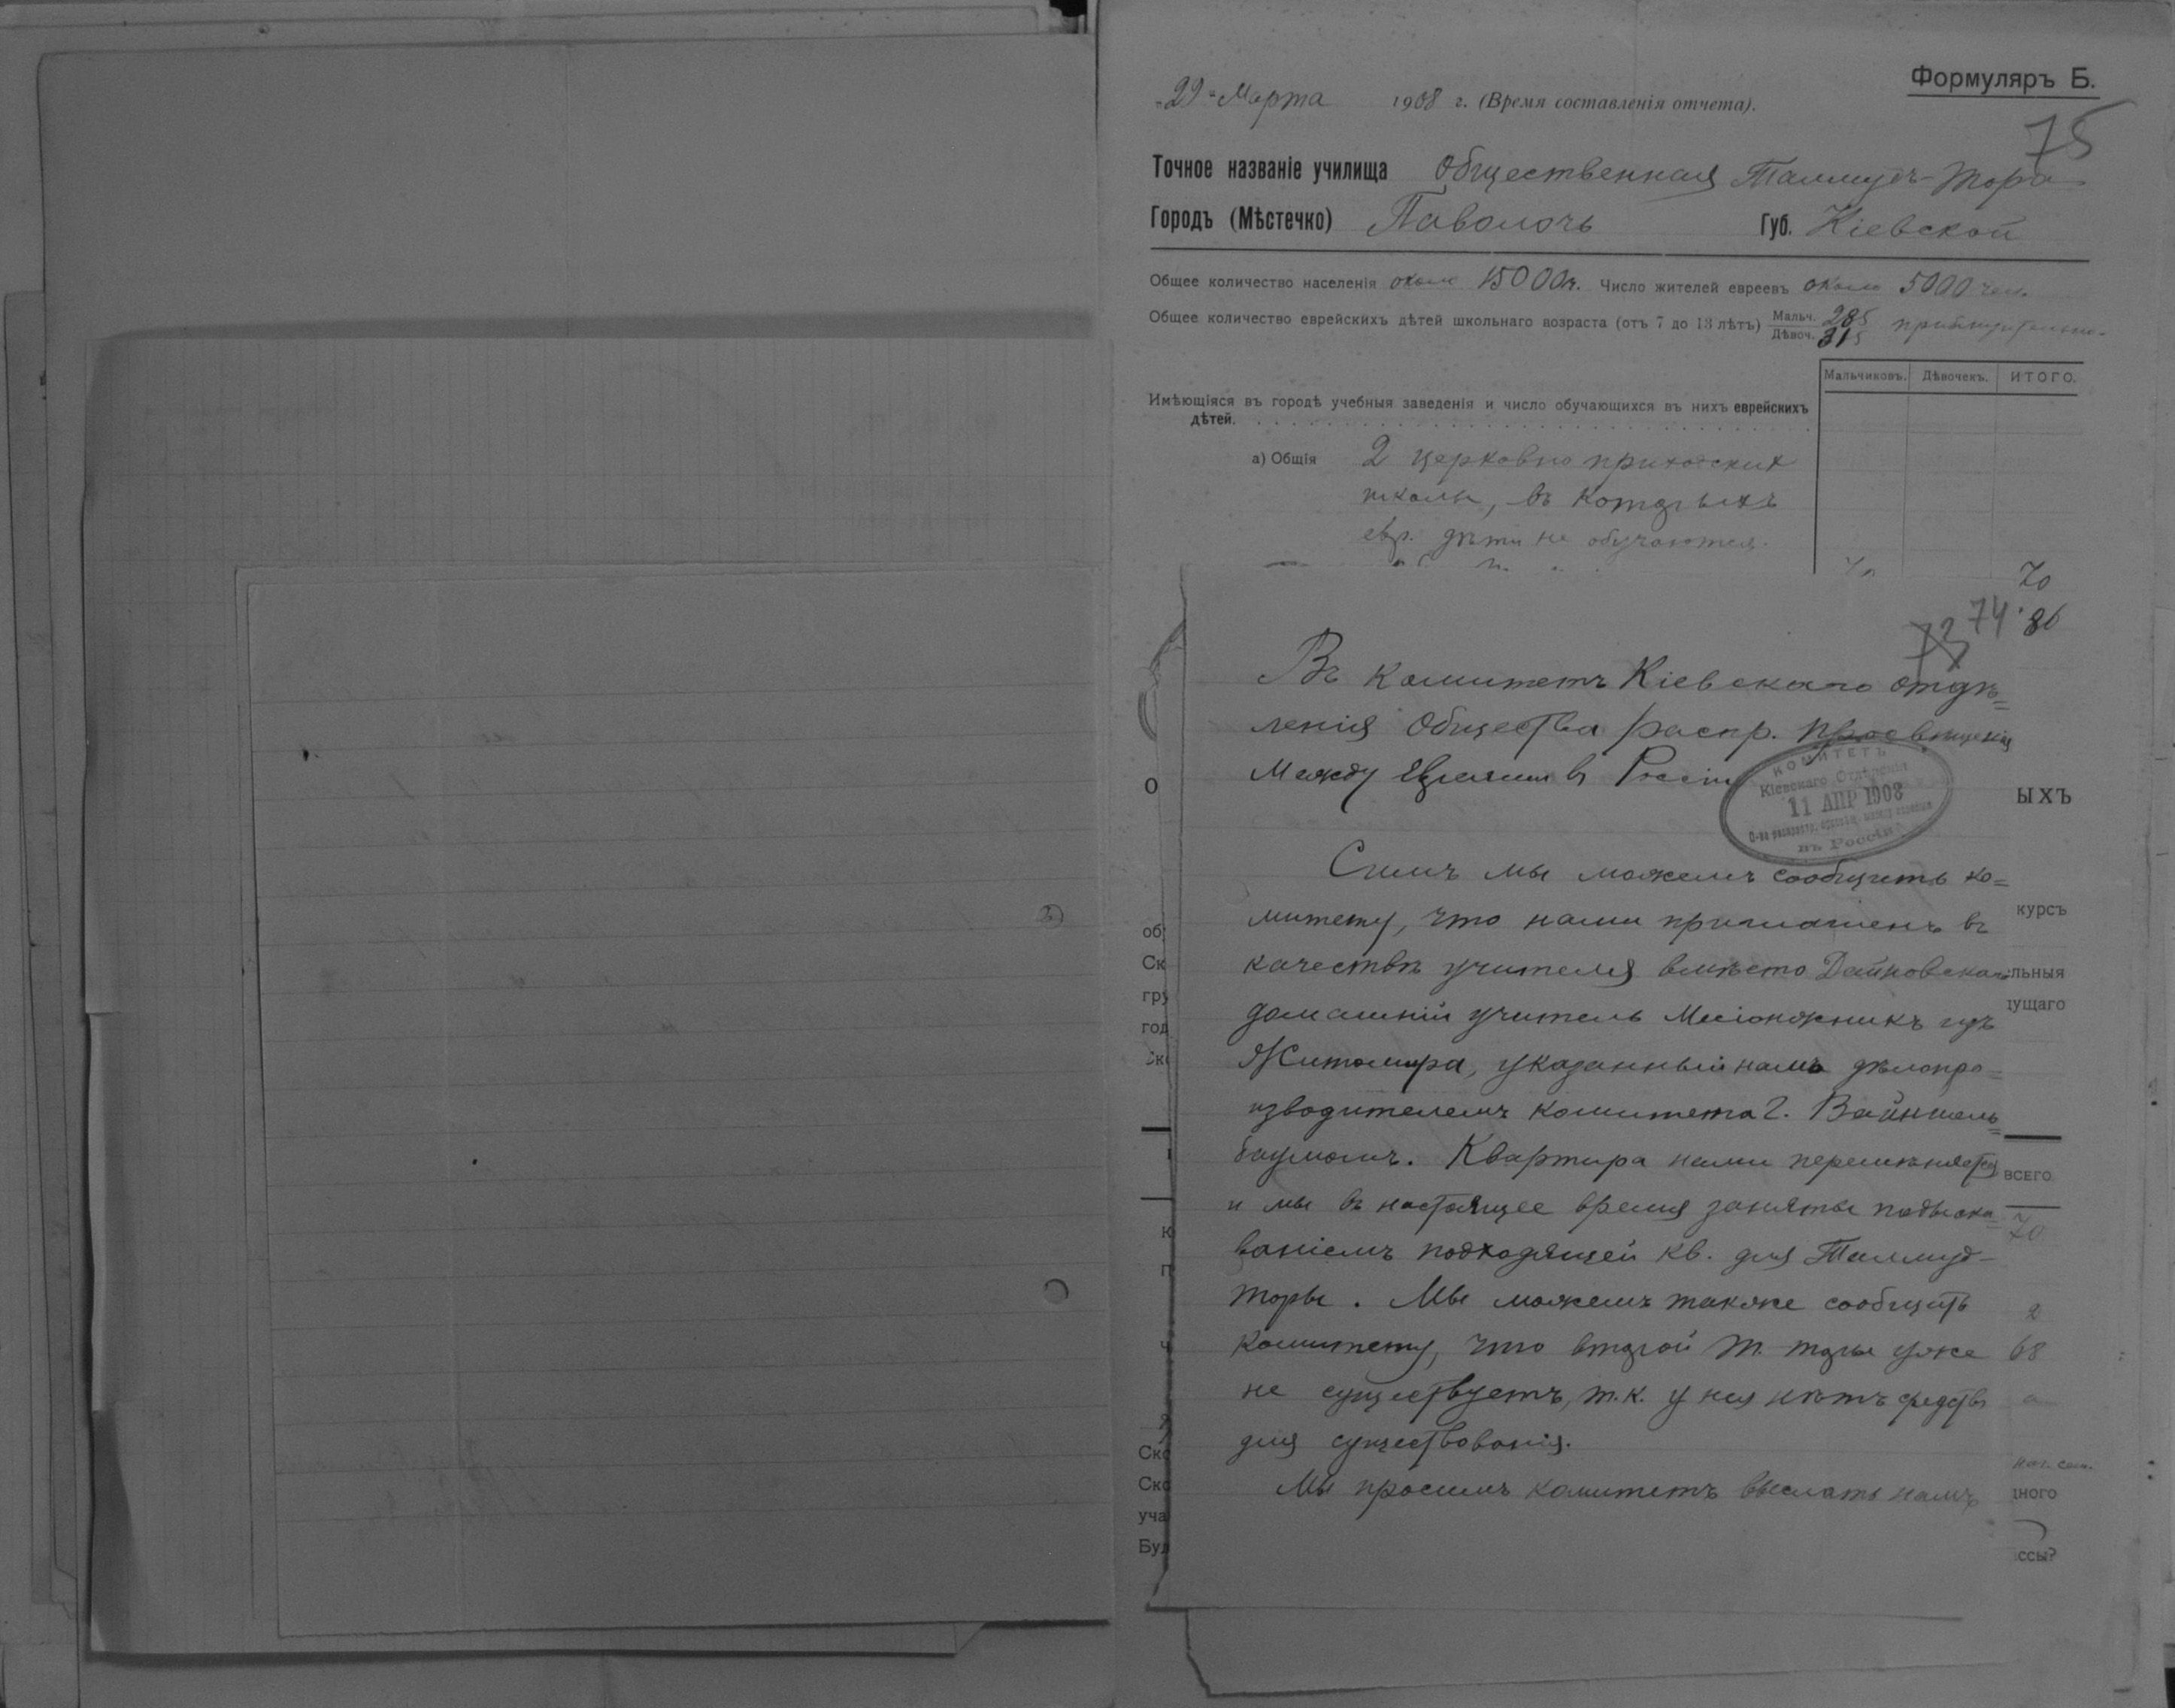 Формуляръ Б.
„29" Марта 1908 г. (Время составленія отчета).
75
Точное названіе училища Общественная Талмудъ-Тора
Городъ (Мѣстечко) Паволочь Губ. Кіевской
Общее количество населенія около 15000 ч. Число жителей евреевъ около 5000 чел.
Общее количество еврейскихъ дѣтей школьнаго возраста (отъ 7 до 13 лѣтъ) Мальч. 285 приблизительно
Дѣвоч. 315
Мальчиковъ. Дѣвочекъ. ИТОГО.
Имѣющіяся въ городѣ учебныя заведенія и число обучающихся въ нихъ еврейскихъ
дѣтей.
а) Общія 2 церковно приходских
школы, въ которыхъ
евр. дѣти не обучаются.
70
73 74 86
Въ Комитетъ Кіевскаго отдѣ=
ленія Общества распр. просвѣщенія
Между Евреями въ Россіи
КОМИТЕТЪ
Кіевскаго Отдѣленія
11 АПР 1908
О-ва распростр. просвѣщ. между евреями
въ Россіи
О
ЫХЪ
Симъ мы можемъ сообщить ко=
митету, что нами приглашенъ въ
курсъ
об
качествѣ учителя вмѣсто Дайновскаго
Ск
льныя
домашній учитель Месіонжникъ изъ
гру
дущаго
год
Житомира, указанный намъ дѣлопро=
Ск
изводителемъ комитета г. Вайншель=
баумомъ. Квартира нами перемѣняется
всего
и мы въ настоящее время заняты подыска=
70
ваніемъ подходящей кв. для Талмуд-
к
п
Торы. Мы можемъ также сообщить
2
комитету, что второй Т. торы уже
68
ч
не существуетъ, т.к. у нея нѣтъ средствъ
для существованія.
Ско
Мы просимъ комитетъ выслать намъ
Ско
дного
уча
Буд
ссы?